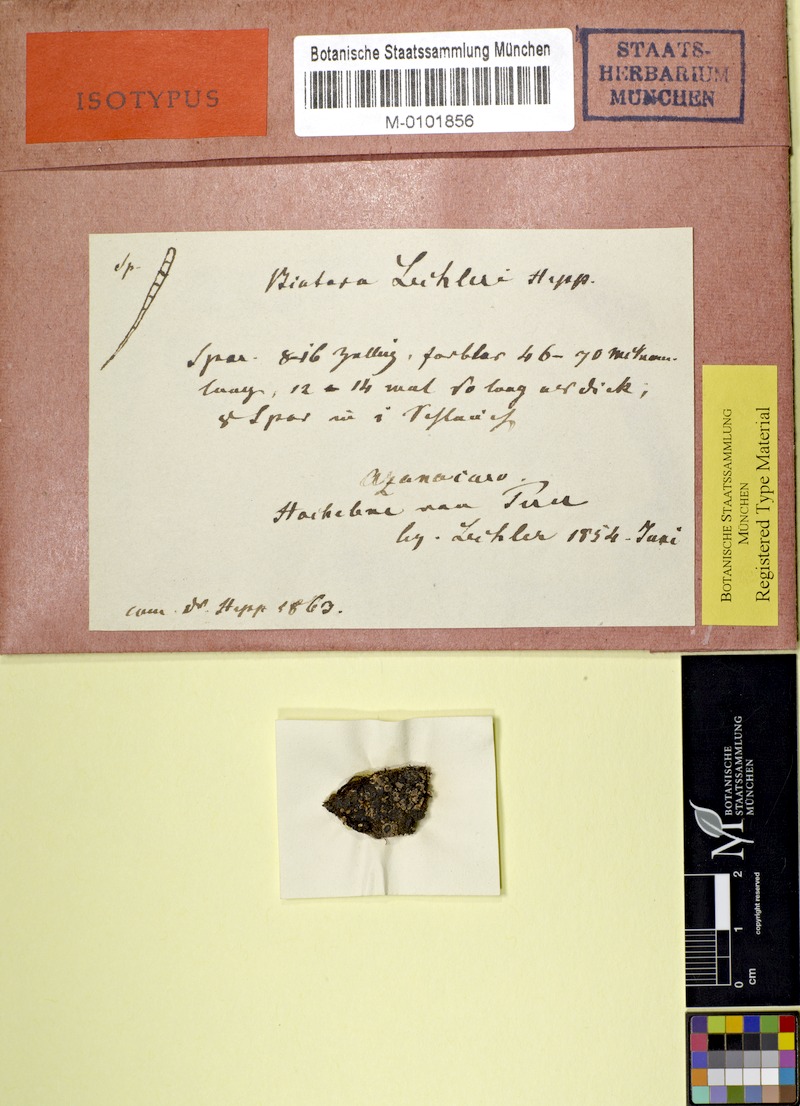 ISOTYPUS
Botanische Staatssammlung München
M-0101856
STAATS-
HERBARIUM
MÜNCHEN
Sp.
Biatora Lechleri Hepp.
Spor. 8-16 zellig, farblos 46-70 mikrom.
lang, 12-14 mal so lang als dick;
8 Spor in 1 Schlauch
Azanacaro.
Hochebne von Peru
lg. Lechler 1854 - Juni
com. Dr. Hepp 1863.
BOTANISCHE STAATSSAMMLUNG
MÜNCHEN
Registered Type Material
BOTANISCHE
STAATSSAMMLUNG
MÜNCHEN
M
0 1 2
cm
copyright reserved